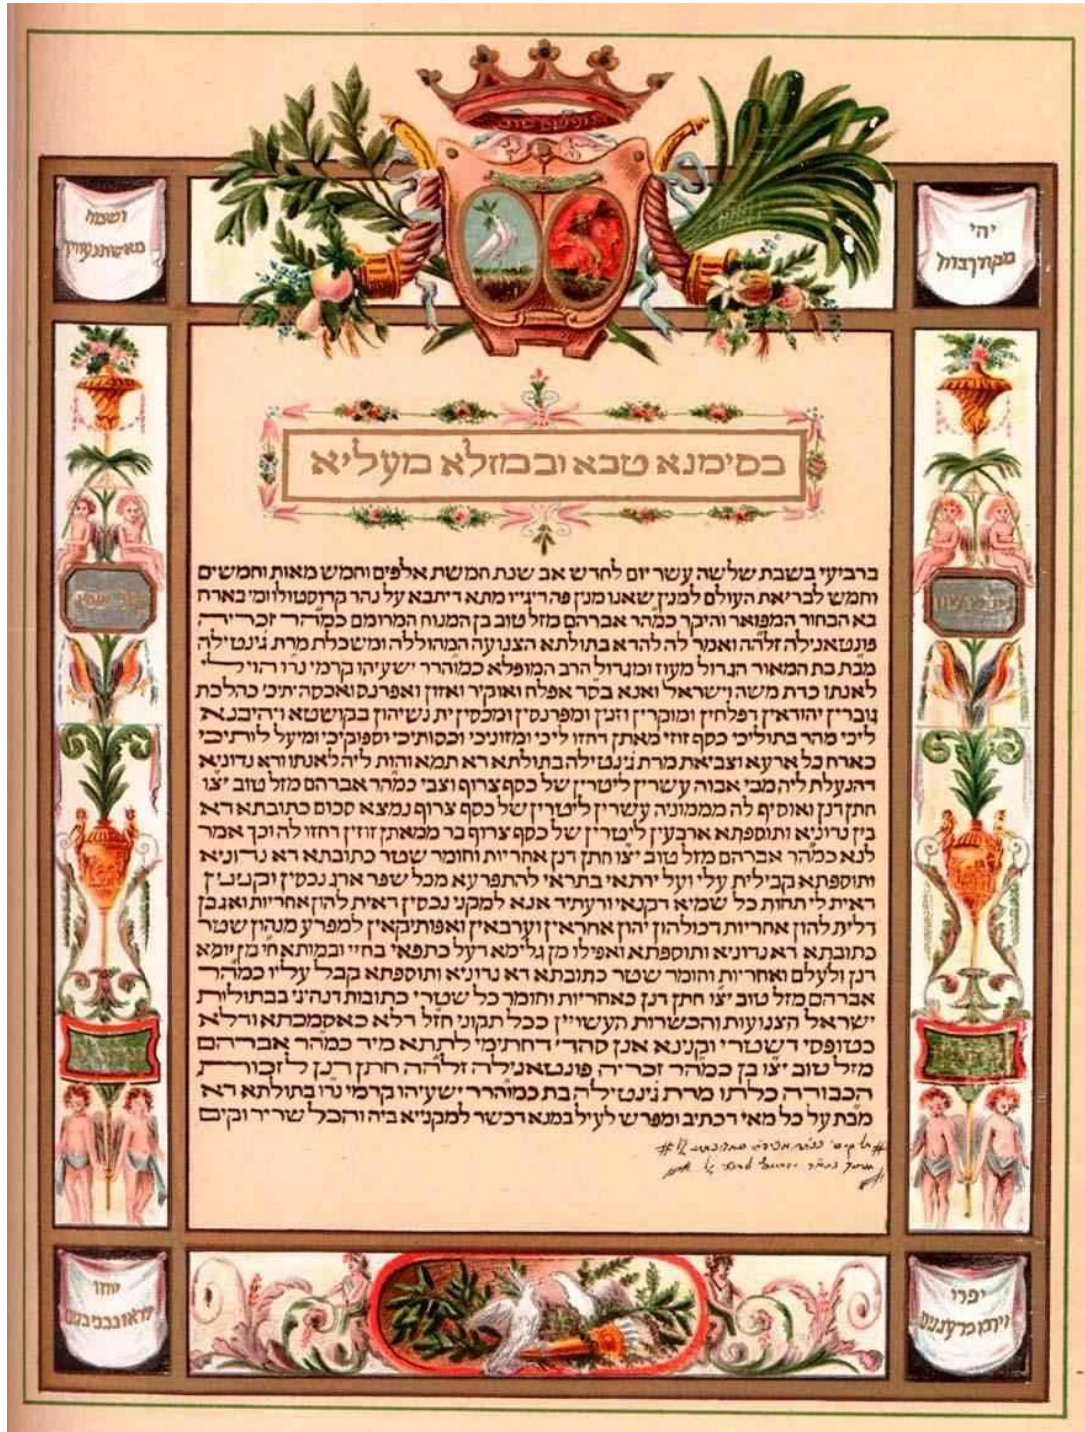 יהי
מקורך ברוך
ושמח
מאשת נעוריך
בסימנא טבא ובמזלא מעליא
ברביעי בשבת שלשה עשר יום לחדש אב שנת חמשת אלפים וחמש מאות וחמשים
וחמש לבריאת העולם למנין שאנו מנין פה ריגייו מתא דיתבא על נהר קרוסטולו ומי בארות
בא הבחור המפואר והיקר כמהר אברהם מזל טוב בן המנוח המרומם כמהר זכריה
פונטאנילה זלהה ואמר לה להדא בתולתא הצנועה המהוללה ומשכלת מרת גינטילה
מבת בת המאור הגדול מעוז ומגדול הרב המופלא כמוהרר ישעיהו קרמי נרו הוי לי
לאנתו כדת משה וישראל ואנא בסד אפלח ואוקיר ואזון ואפרנס ואכסה יתיכי כהלכת
גוברין יהודאין דפלחין ומוקרין וזנין ומפרנסין ומכסין ית נשיהון בקושטא ויהיבנא
ליכי מהר בתוליכי כסף זוזי מאתן דחזו ליכי ומזוניכי וכסותיכי וסיפוקיכי ומיעל לותיכי
כארח כל ארעא וצביאת מרת גינטילה בתולתא דא תמא והות ליה לאנתו ודא נדוניא
דהנעלת ליה מבי אבוה עשרין ליטרין של כסף צרוף וצבי כמהר אברהם מזל טוב יצו
חתן דנן ואוסיף לה מממוניה עשרין ליטרין של כסף צרוף נמצא סכום כתובתא דא
בין נדוניא ותוספתא ארבעין ליטרין של כסף צרוף בר ממאתן זוזין דחזו לה וכך אמר
לנא כמהר אברהם מזל טוב יצו חתן דנן אחריות וחומר שטר כתובתא דא נדוניא
ותוספתא קבילית עלי ועל ירתאי בתראי להתפרעא מכל שפר ארג נכסין וקנינין
דאית לי תחות כל שמיא דקנאי ודעתיד אנא למקני נכסין דאית להון אחריות ואגבן
דלית להון אחריות דכולהון יהון אחראין וערבאין ואפותיקאין למפרע מנהון שטר
כתובתא דא נדוניא ותוספתא ואפילו מן גלימא דעל כתפאי בחיי ובמותא מן יומא
דנן ולעלם ואחריות וחומר שטר כתובתא דא נדוניא ותוספתא קבל עליו כמהר
אברהם מזל טוב יצו חתן דנן כאחריות וחומר כל שטרי כתובות דנהיגי בבתולות
ישראל הצנועות והכשרות העשויין ככל תקוני חזל דלא כאסמכתא ודלא
כטופסי דשטרי וקנינא אנן סהדי דחתימי לתתא מיד כמהר אברהם
מזל טוב יצו בן כמהר זכריה פונטאנילה זלהה חתן דנן לזכות
הכבודה כלתו מרת גינטילה בת כמוהרר ישעיהו קרמי נרו בתולתא דא
מבת על כל מאי דכתיב ומפרש לעיל במנא דכשר למקנייא ביה והכל שריר וקים
יפרו
וירבו כרעננים
יחדו